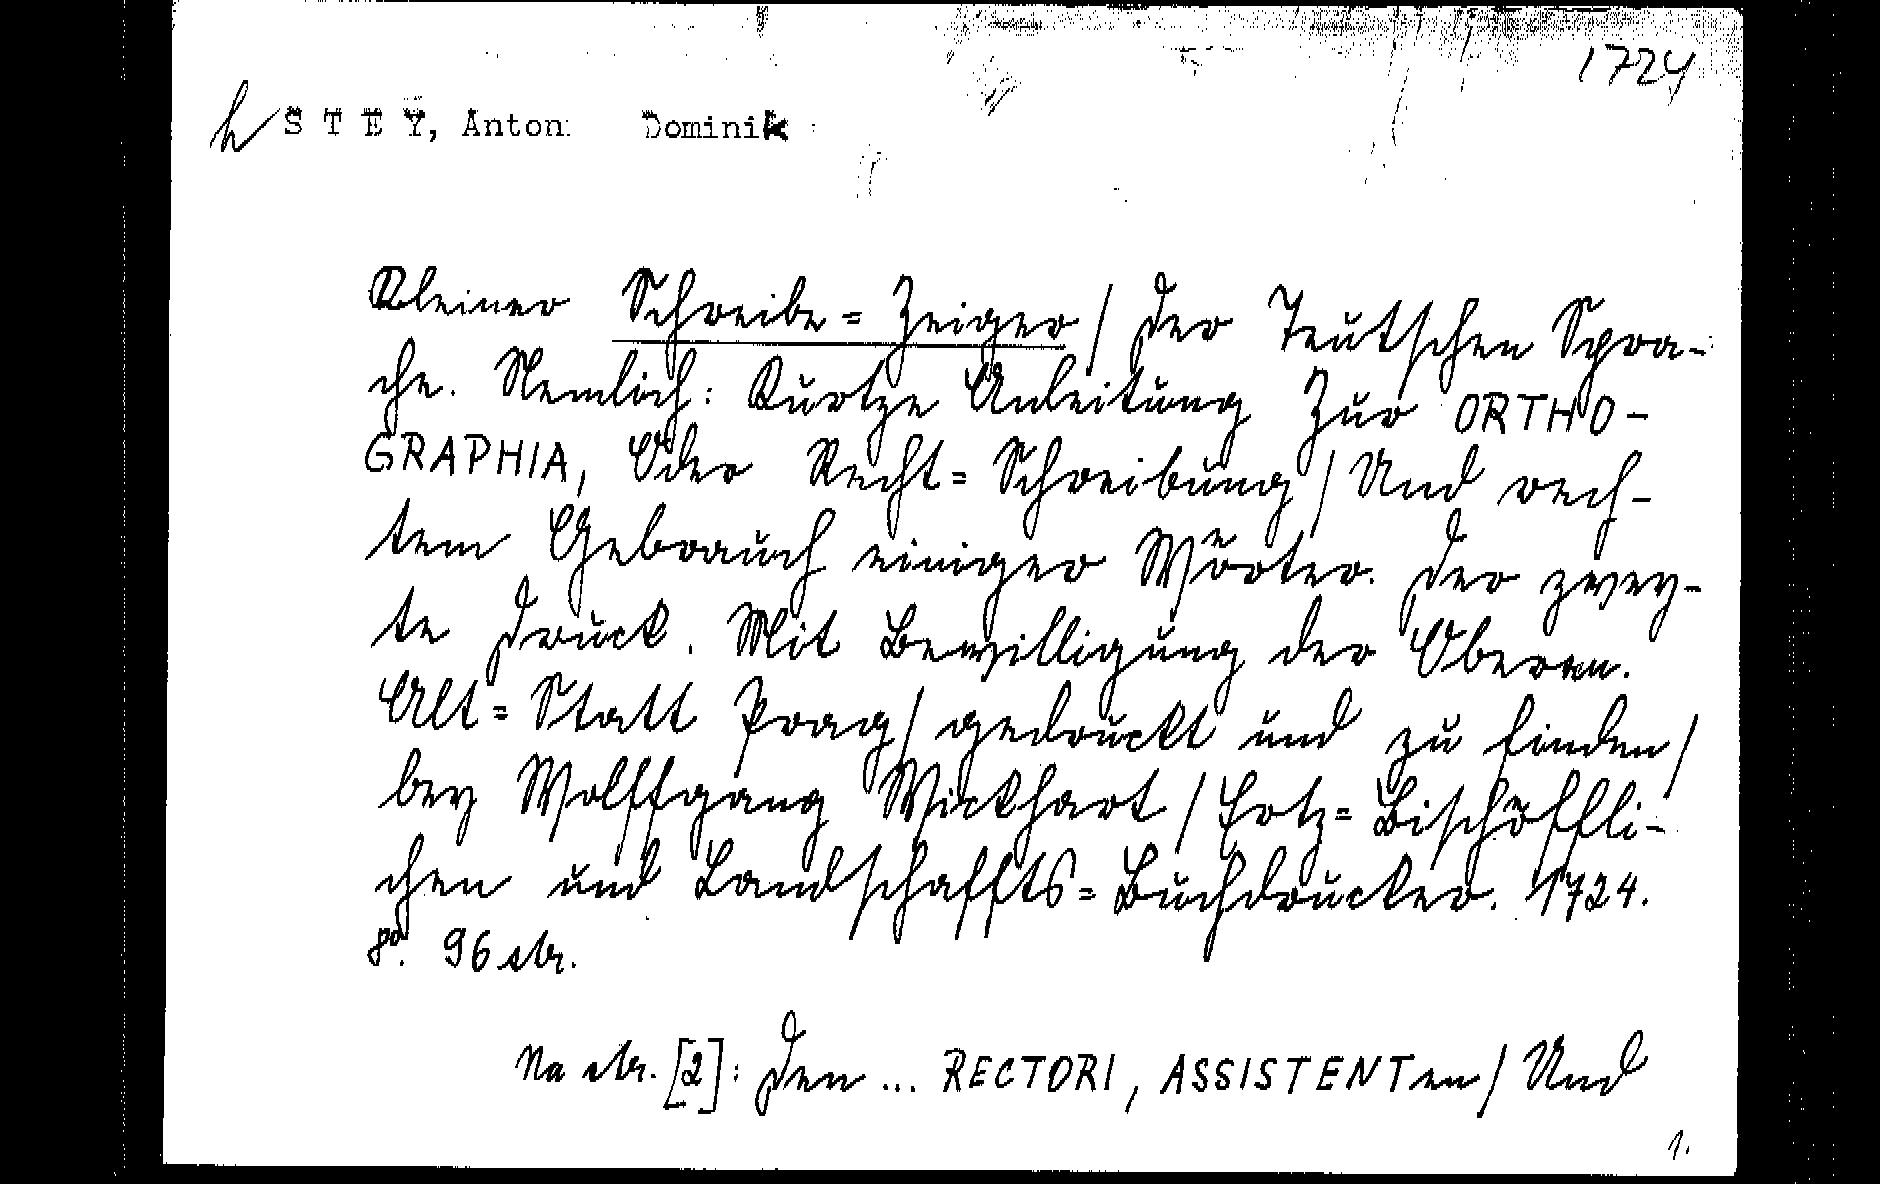 1724
h STEY, Anton Dominik
Kleiner Schreibe=Zeiger / Der Teutschen Spra-
che. Nemlich: Kurtze Anleitung Zur ORTHO-
GRAPHIA, Oder Recht=Schreibung / Und rech-
tem Gebrauch einiger Wörter. Der zwey-
te Druck. Mit Bewilligung der Oberen.
Alt=Statt Prag / gedruckt und zu finden /
bey Wolffgang Wickhart / Ertz=Bischöffli-
chen und Landschaffts=Buchdrucker. 1724.
8°. 96 str.
Na str. [2]: Den ... RECTORI, ASSISTENTen / Und
1.